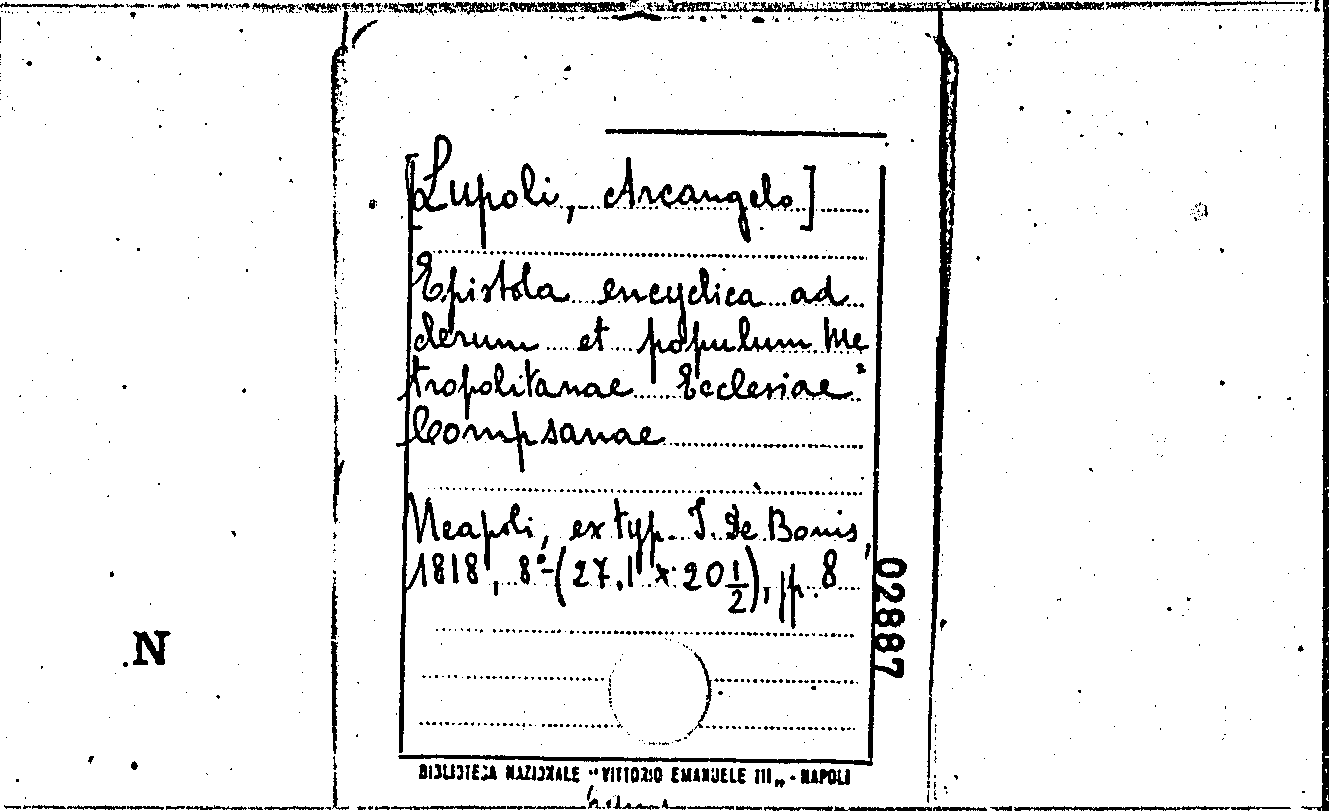 [Lupoli, Arcangelo]
Epistola encyclica ad
clerum et populum Me
tropolitanae Ecclesiae
Compsanae
Neapoli, ex typ. J. De Bonis,
1818, 8°-(27.1 x 20 1/2), pp. 8
02887
N
BIBLIOTECA NAZIONALE "VITTORIO EMANUELE III" - NAPOLI